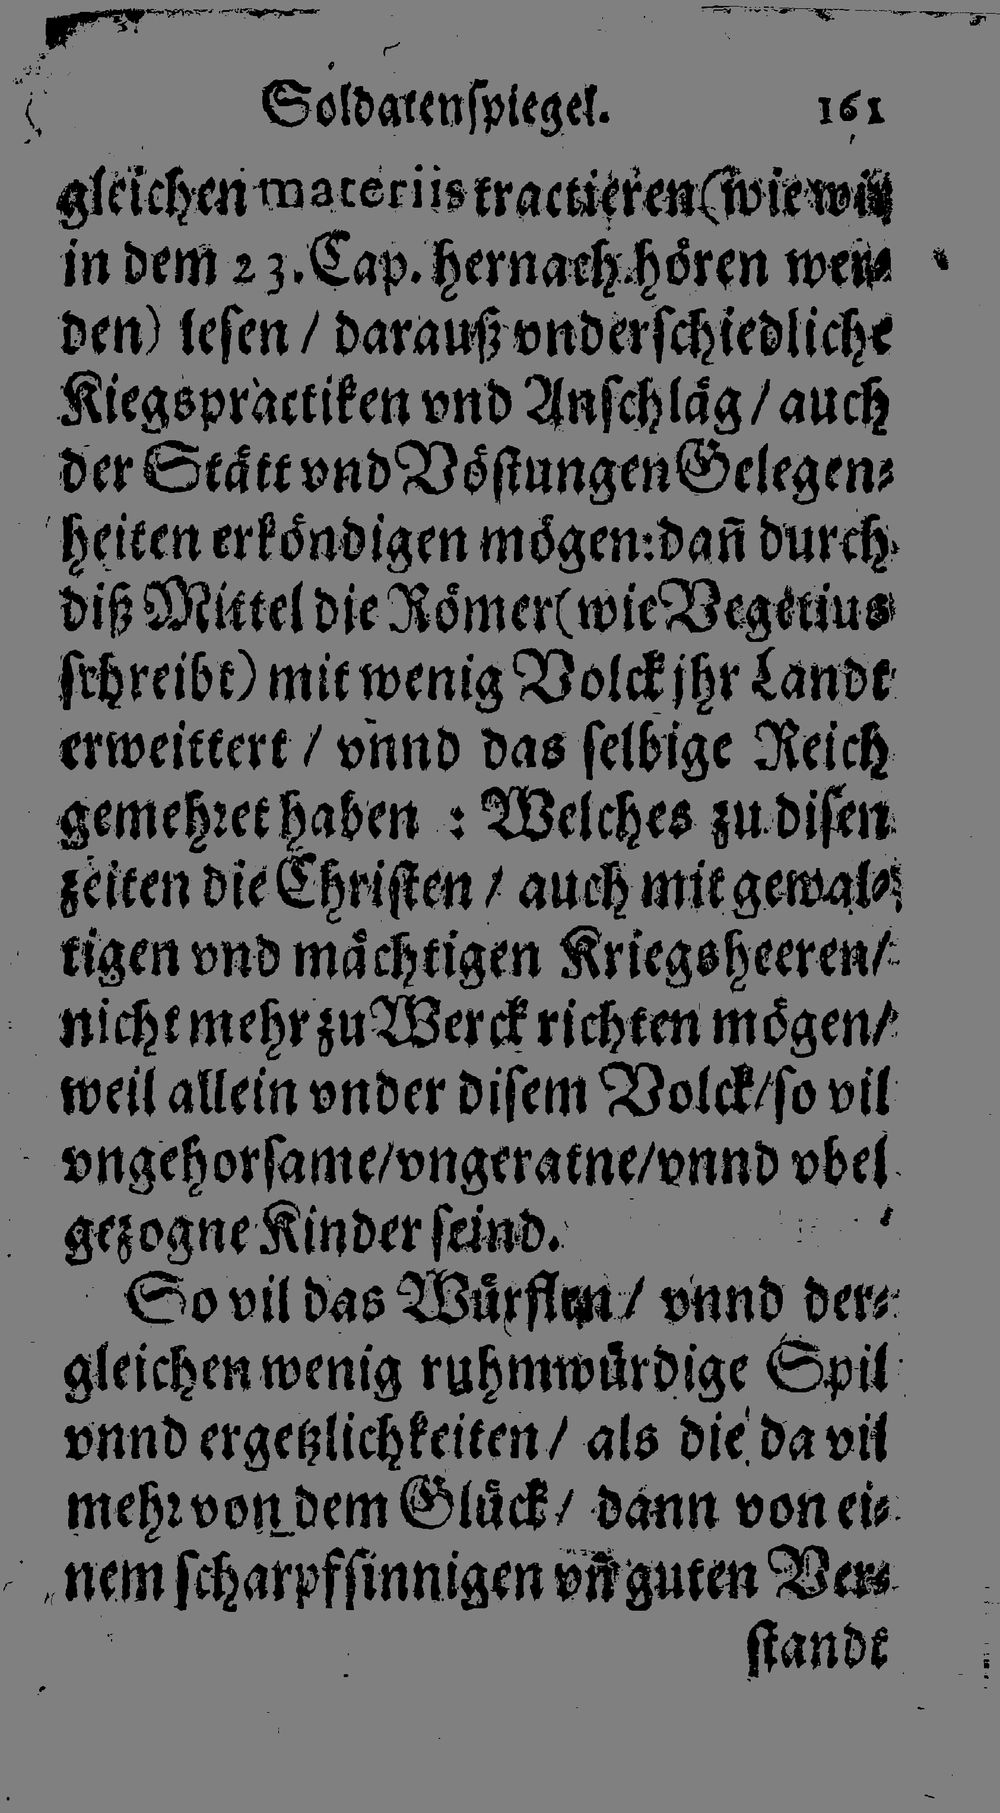 Soldatenſpiegel. 161
gleichen materiis tractieren (wie wir
in dem 23. Cap. hernach hören wer⸗
den) leſen / darauß vnderſchiedliche
Kiegspractiken vnd Anſchläg / auch
der Stätt vnd Vöſtungen Gelegen⸗
heiten erköndigen mögen: dañ durch
diß Mittel die Römer (wie Vegetius
ſchreibt) mit wenig Volck jhr Landt
erweittert / vnnd das ſelbige Reich
gemehret haben : Welches zu diſen
zeiten die Chriſten / auch mit gewal⸗
tigen vnd mächtigen Kriegsheeren /
nicht mehr zu Werck richten mögen /
weil allein vnder diſem Volck / ſo vil
vngehorſame / vngeratne / vnnd vbel
gezogne Kinder ſeind.
So vil das Würflen / vnnd der⸗
gleichen wenig ruhmwürdige Spil
vnnd ergetzlichkeiten / als die da vil
mehr von dem Glück / dann von ei⸗
nem ſcharpfſinnigen vñ guten Ver⸗
ſtandt